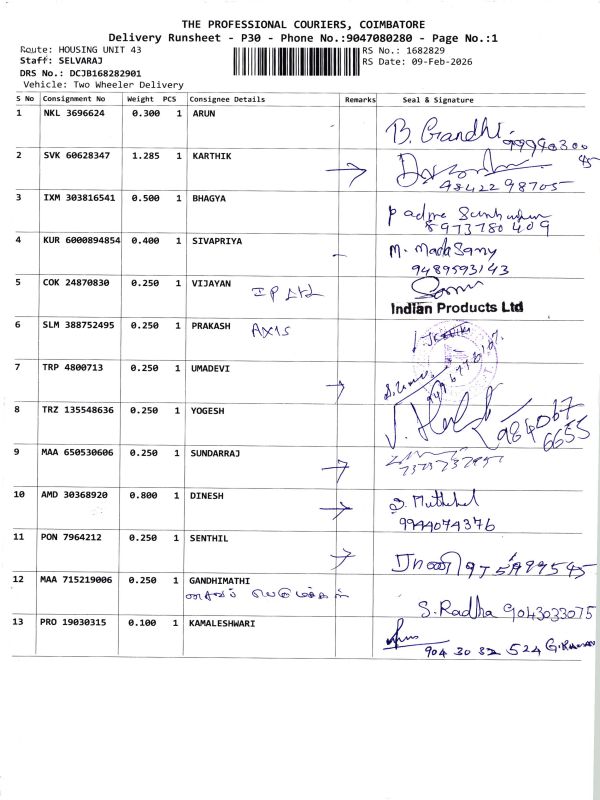 THE PROFESSIONAL COURIERS, COIMBATORE
Delivery Runsheet - P30 - Phone No.:9047080280 - Page No.:1
Route: HOUSING UNIT 43
RS No.: 1682829
Staff: SELVARAJ
RS Date: 09-Feb-2026
DRS No.: DCJB168282901
Vehicle: Two Wheeler Delivery
S No Consignment No Weight PCS Consignee Details Remarks Seal & Signature
1 NKL 3696624 0.300 1 ARUN B. Gandhi
2 SVK 60628347 1.285 1 KARTHIK 9842298705
3 IXM 303816541 0.500 1 BHAGYA Padma
8973780409
4 KUR 6000894854 0.400 1 SIVAPRIYA M. MadaSamy
9489593143
5 COK 24870830 0.250 1 VIJAYAN IP Ltd
Indian Products Ltd
6 SLM 388752495 0.250 1 PRAKASH AXIS
7 TRP 4800713 0.250 1 UMADEVI
8 TRZ 135548636 0.250 1 YOGESH 984067
6655
9 MAA 650530606 0.250 1 SUNDARRAJ
10 AMD 30368920 0.800 1 DINESH S. Muthulal
9944074376
11 PON 7964212 0.250 1 SENTHIL
12 MAA 715219006 0.250 1 GANDHIMATHI
S. Radha 9043033075
13 PRO 19030315 0.100 1 KAMALESHWARI
904 30 32 524